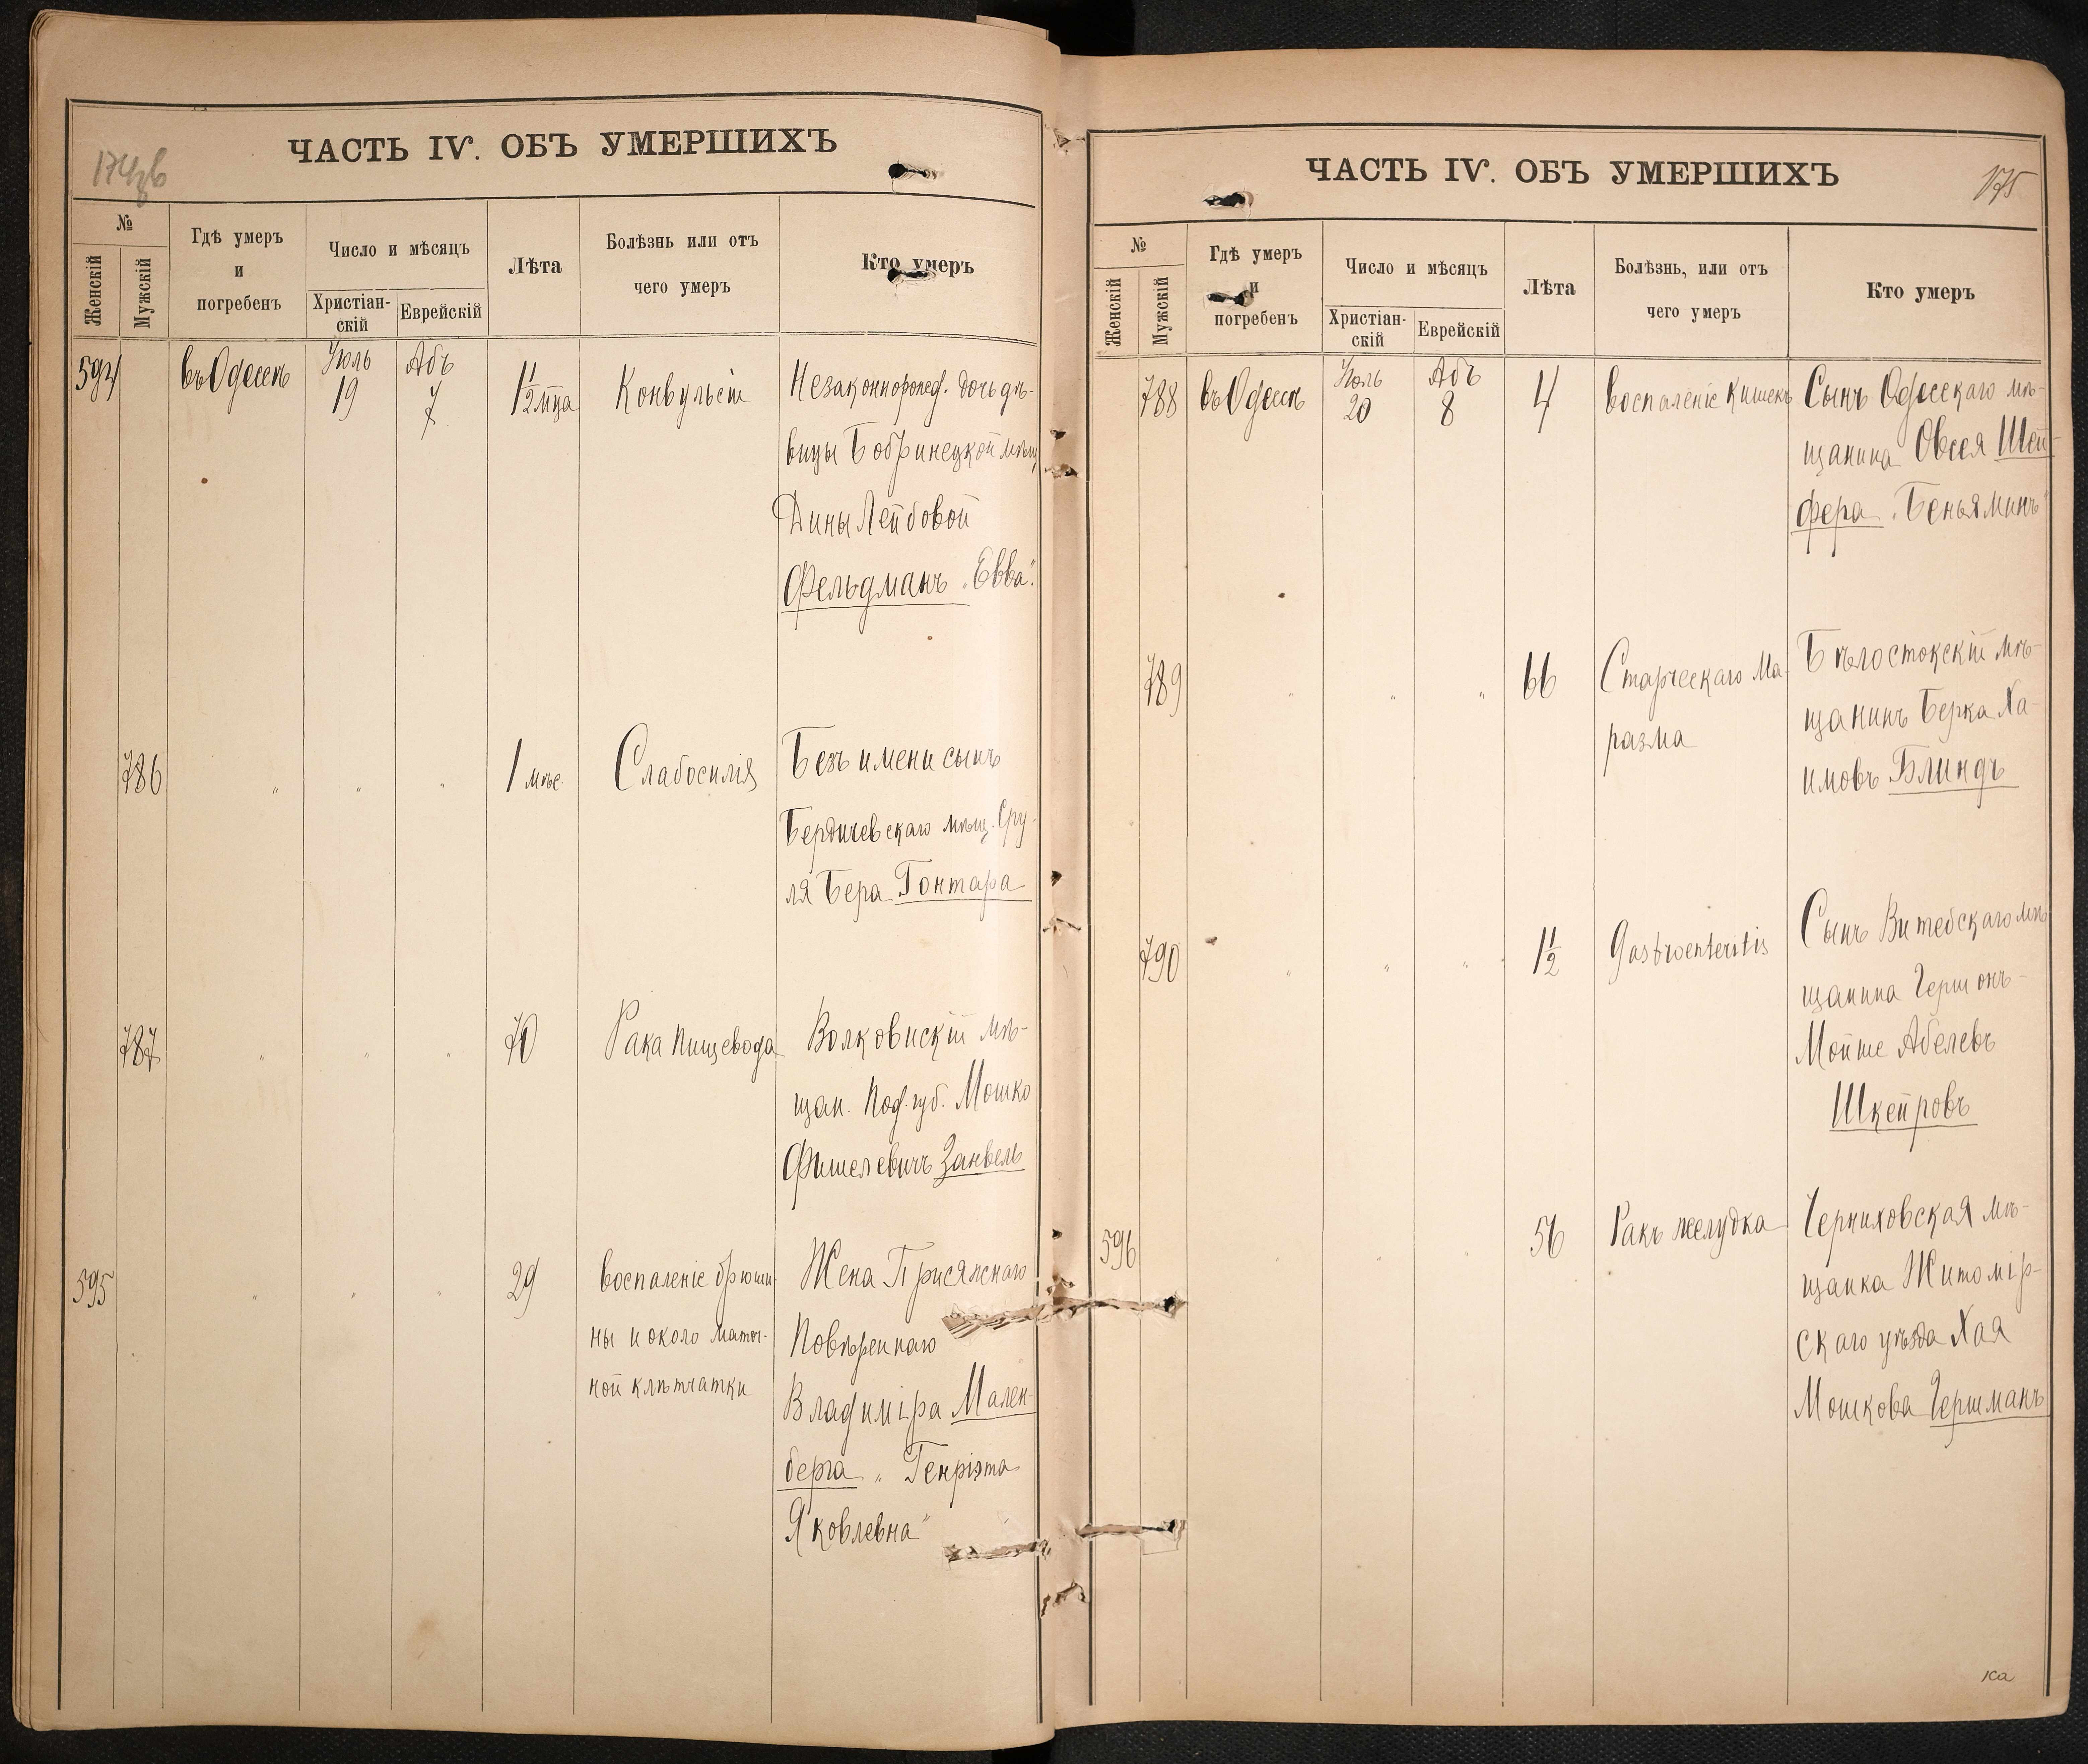 174об
ЧАСТЬ IV. ОБЪ УМЕРШИХЪ
№
Женскій
Мужскій
Гдѣ умеръ
и
погребенъ
Число и мѣсяцъ
Христіан-
скій
Еврейскій
Лѣта
Болѣзнь или отъ
чего умеръ
Кто умеръ
594 въ Одессѣ Іюль 19 Абъ 7 1 1/2 мца Конвульсіи Незаконнорожд. дочь дѣ-
вицы Бобринецкой мѣщ
Дины Лейбовой
Фельдманъ „Евва“.
786 „ „ „ 1 мѣс. Слабосилія Безъ имени сынъ
Бердичевскаго мѣщ. Сру-
ля Бера Гонтара
787 „ „ „ 70 Рака пищевода Волковискій мѣ-
щан. Под. губ. Мошко
Фишелевичъ Занвель
595 „ „ „ 29 воспаленіе брюши- Жена Присяжнаго
ны и около маточ- Повѣреннаго
ной клѣтчатки Владиміра Мален-
берга „Генріэта
Яковлевна“
175
ЧАСТЬ IV. ОБЪ УМЕРШИХЪ
№
Женскій
Мужскій
Гдѣ умеръ
и
погребенъ
Число и мѣсяцъ
Христіан-
скій
Еврейскій
Лѣта
Болѣзнь, или отъ
чего умеръ
Кто умеръ
788 въ Одессѣ Іюль 20 Абъ 8 4 воспаленіе кишекъ Сынъ Одесскаго мѣ-
щанина Овсея Шей-
фера „Беньяминъ“
789 „ „ „ 66 Старческаго Ма- Бѣлостокскій мѣ-
разма щанинъ Берка Ха-
имовъ Блиндъ
790 „ „ „ 1 1/2 Gastroenteritis Сынъ Витебскаго мѣ-
щанина Гершонъ-
Мойше Абелевъ
Шкейровъ
596 „ „ „ 56 Ракъ желудка Черниховская мѣ-
щанка Житомір-
скаго уѣзда Хая
Мошкова Гершманъ
ка